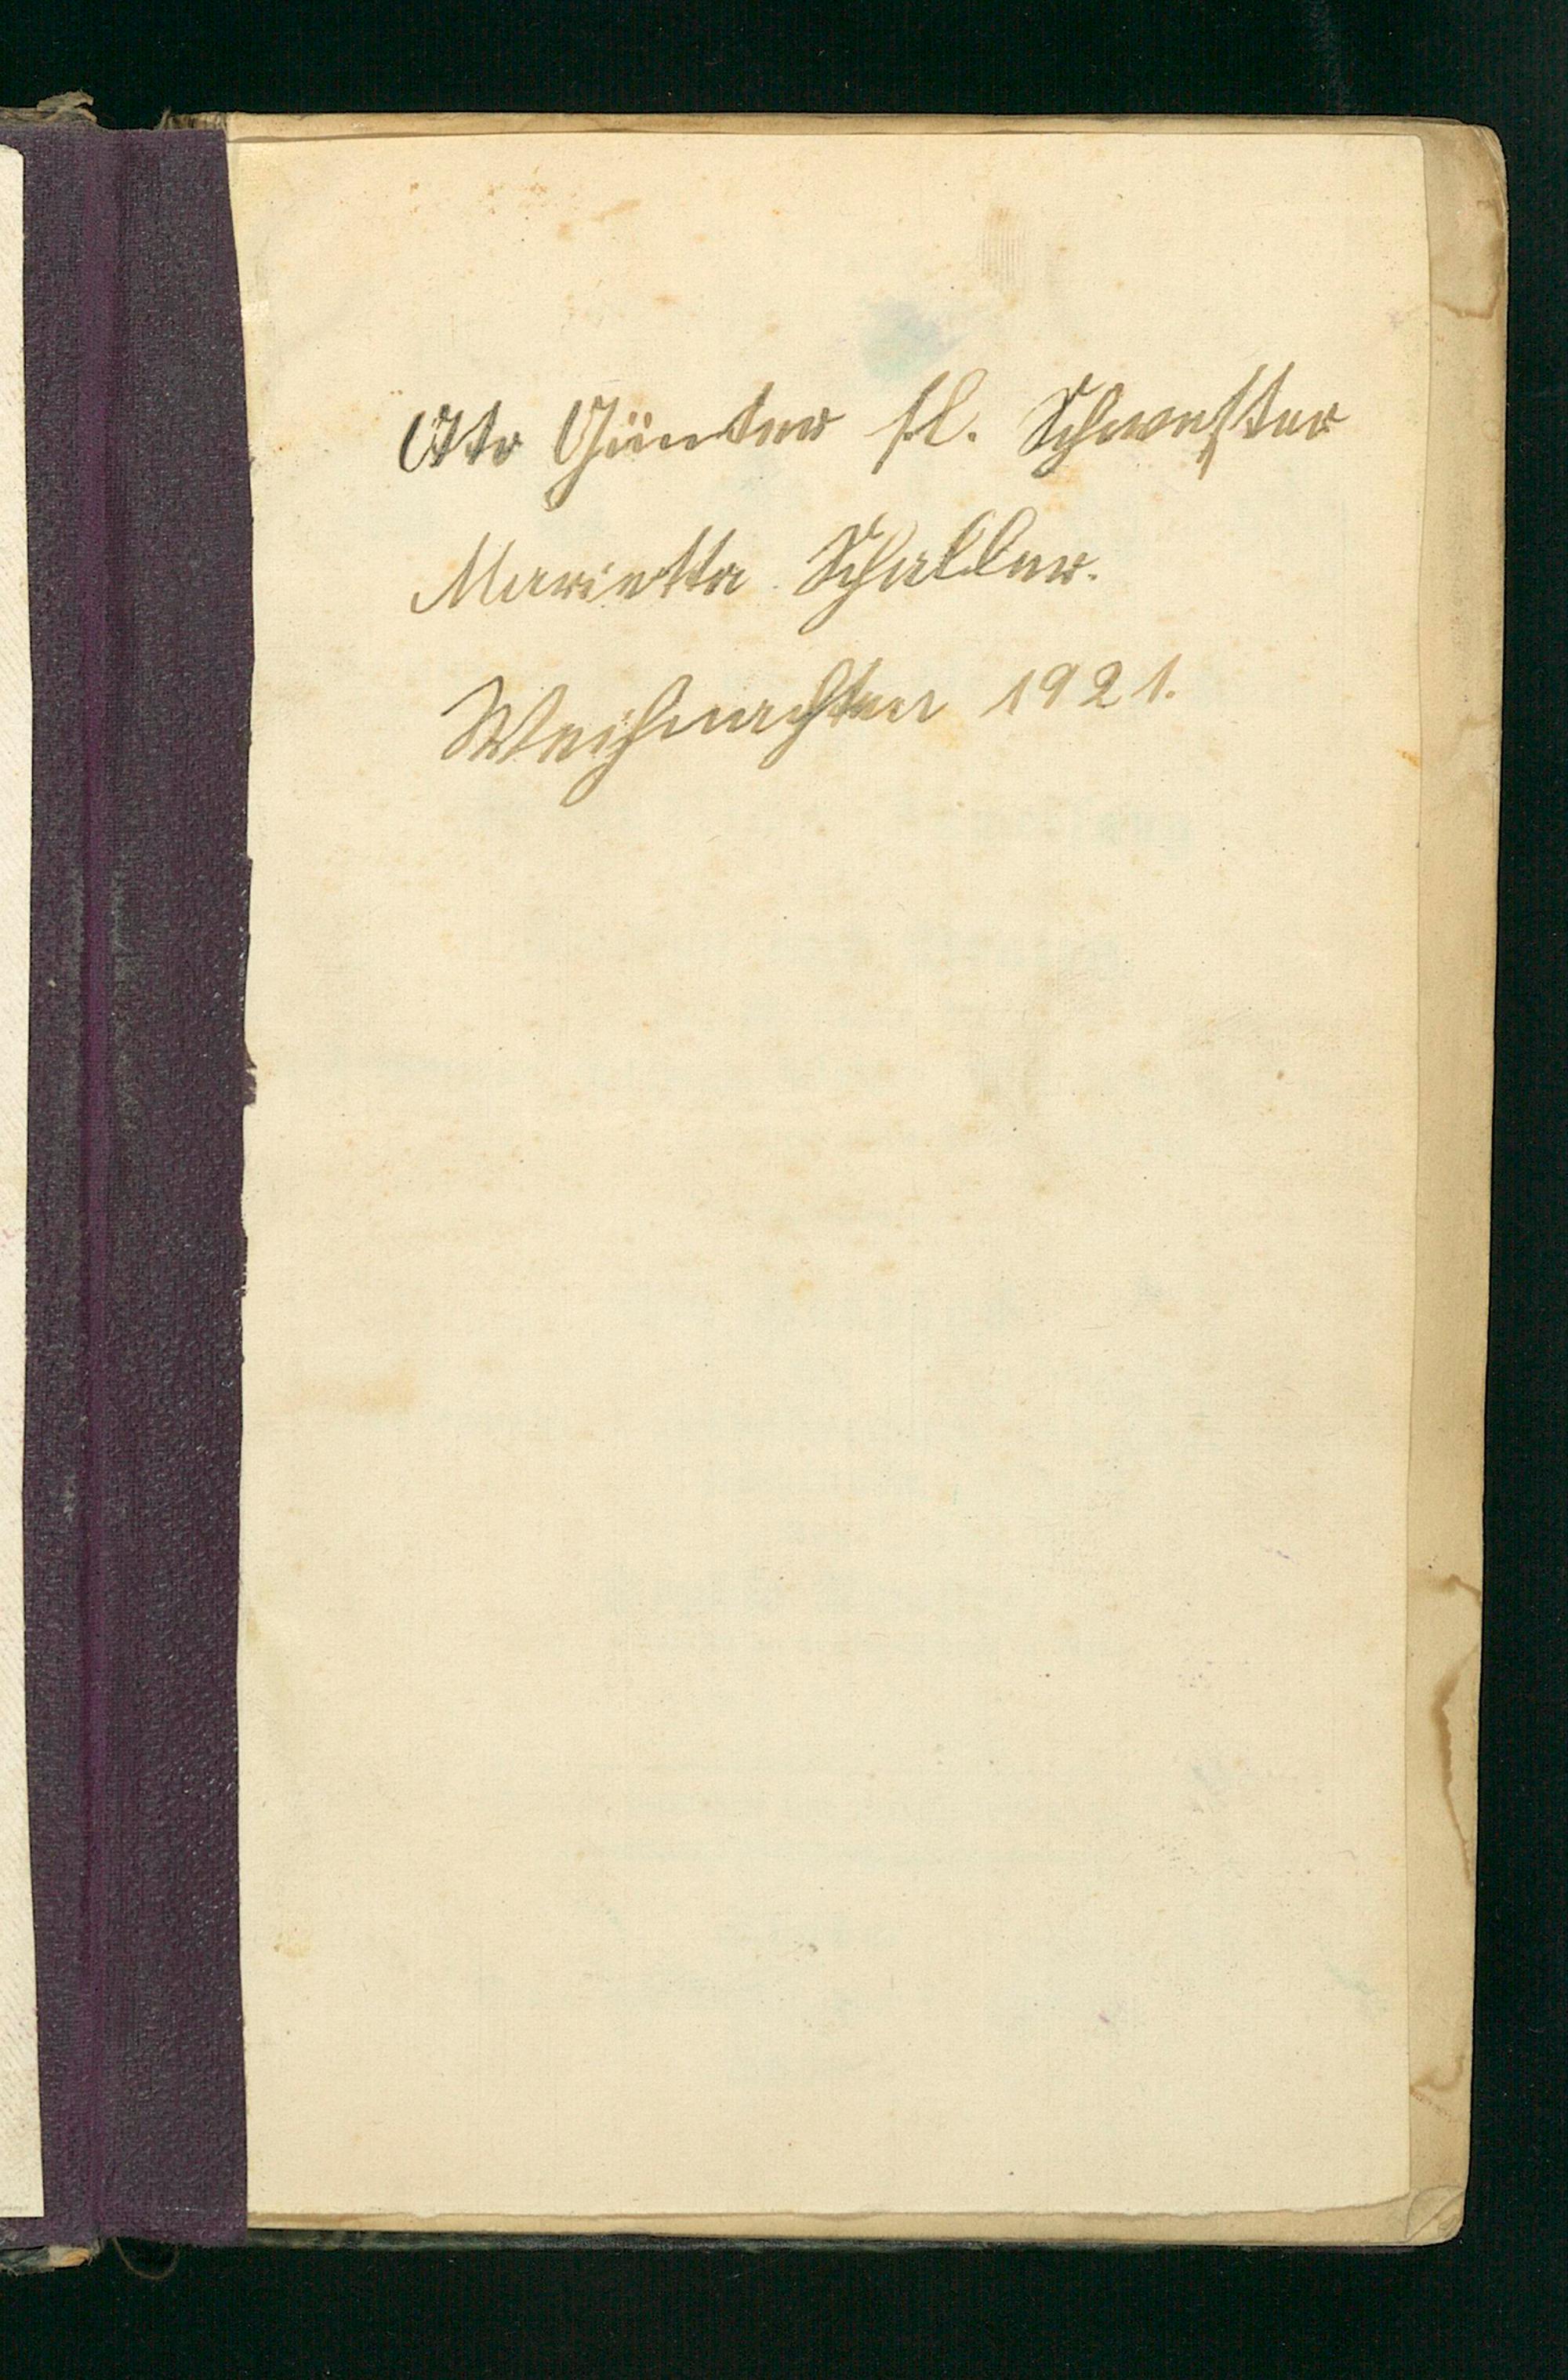 Otto Günter s. l. Schwester
Marietta Schaller.
Weihnachten 1921.